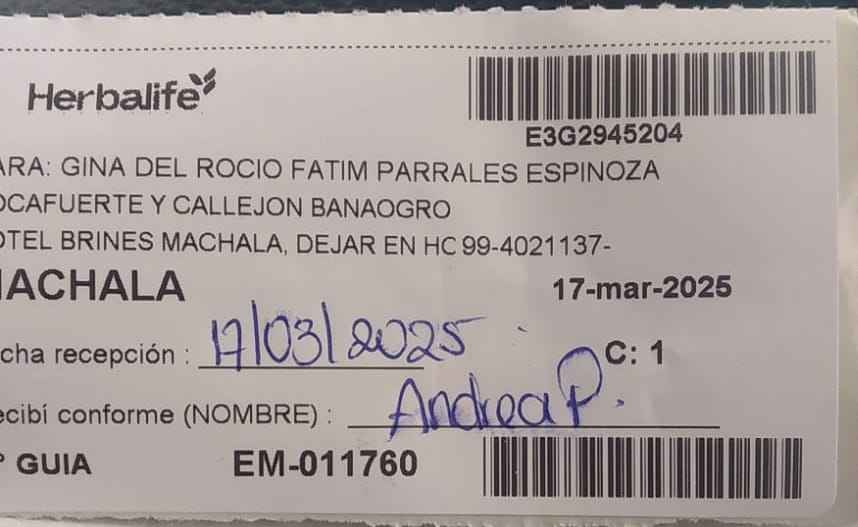 Herbalife
E3G2945204
ARA: GINA DEL ROCIO FATIM PARRALES ESPINOZA
OCAFUERTE Y CALLEJON BANAOGRO
OTEL BRINES MACHALA, DEJAR EN HC 99-4021137-
MACHALA 17-mar-2025
cha recepción : 17/03/2025 C: 1
ecibí conforme (NOMBRE) : Andrea P.
° GUIA EM-011760